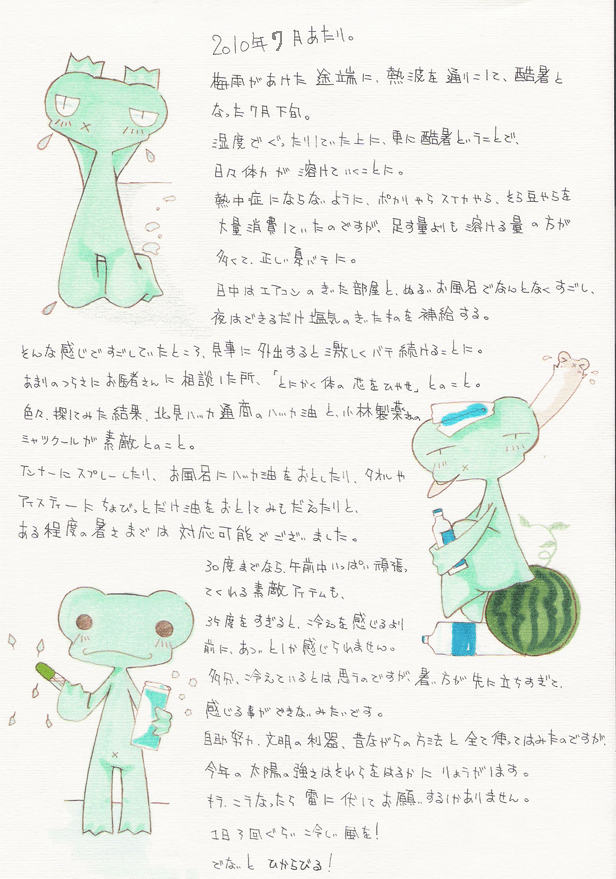 2010年7月あたり。
梅雨があけた途端に、熱波を通りこして、酷暑と
なった7月下旬。
湿度でぐったりしていた上に、更に酷暑ということで、
日々体力が溶けていくことに。
熱中症にならないように、ポカリやらスイカやら、そら豆やらを
大量消費していたのですが、足す量よりも溶ける量の方が
多くて、正しい夏バテに。
日中はエアコンのきいた部屋と、ぬるいお風呂でなんとなくすごし、
夜はできるだけ塩気のきいたものを補給する。
そんな感じですごしていたところ、見事に外出すると激しくバテ続けることに。
あまりのつらさにお医者さんに相談した所、「とにかく体の芯をひやせ」とのこと。
色々、探してみた結果、北見ハッカ通商のハッカ油と、小林製薬さんの
シャツクールが素敵とのこと。
インナーにスプレーしたり、お風呂にハッカ油をおとしたり、タオルや
アイスティーにちょびっとだけ油をおとしてみもだえたりと、
ある程度の暑さまでは対応可能でございました。
30度までなら、午前中いっぱい頑張っ
てくれる素敵アイテムも、
35度をすぎると、冷えを感じるより
前に、あついとしか感じられません。
多分、冷えているとは思うのですが、暑い方が先に立ちすぎて、
感じる事ができないみたいです。
自助努力、文明の利器、昔ながらの方法と全て使ってはみたのですが、
今年の太陽の強さはそれらをはるかにりょうがします。
もう、こうなったら雷に伏してお願いするしかありません。
1日3回ぐらい冷しい風を!
でないとひからびる!